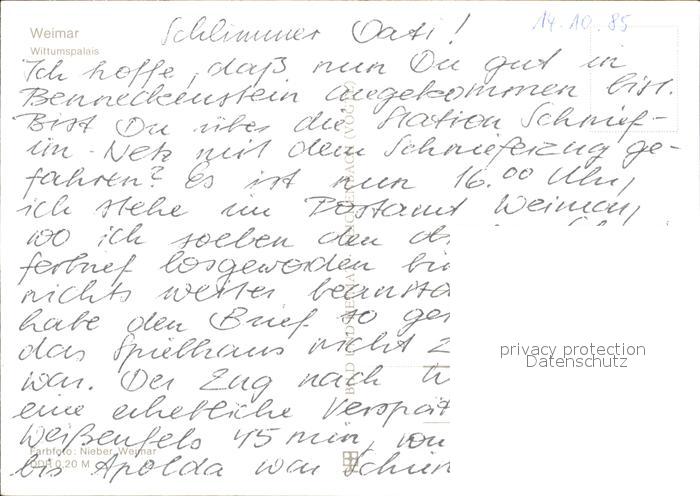 Weimar
Wittumspalais
14.10.85
Schlimmer Vati!
Ich hoffe, daß nun Du gut in
Benneckenstein angekommen bist.
Bist Du über die Station Schnief-
im-Netz mit dem Schnieferzug ge-
fahren? Es ist nun 16.00 Uhr,
ich stehe im Postamt Weimar,
wo ich soeben den
losgeworden bin
nichts weiter beansta
habe den Brief so ge
das Spielhaus nicht
war. Der Zug nach
eine erhebliche Verspät
Weißenfels 45 min, von
bis Apolda war Schien
Farbfoto: Nieber, Weimar
DDR 0,20 M
privacy protection
Datenschutz